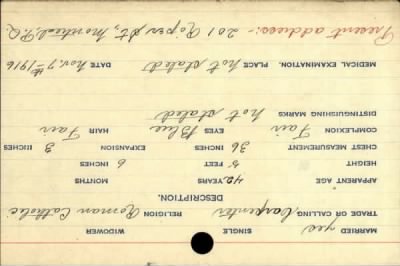 MARRIED yes SINGLE WIDOWER
TRADE OR CALLING Carpenter RELIGION Roman Catholic
DESCRIPTION.
APPARENT AGE 42 YEARS MONTHS
HEIGHT 5 FEET 6 INCHES
CHEST MEASUREMENT 36 INCHES EXPANSION 3 INCHES
COMPLEXION Fair EYES Blue HAIR Fair
DISTINGUISHING MARKS not stated
MEDICAL EXAMINATION. PLACE not stated DATE Nov. 7th 1916
Present address:- 201 Roper St., Montreal P.Q.